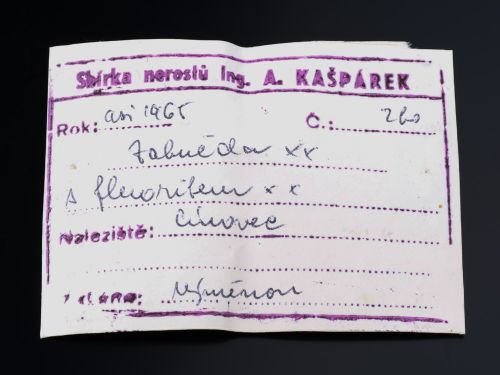 Sbírka nerostů Ing. A. KAŠPÁREK
Rok: asi 1965 Č.: 260
Záhněda xx
s fluoritem xx
Naleziště: Cínovec
Získáno: výměnou